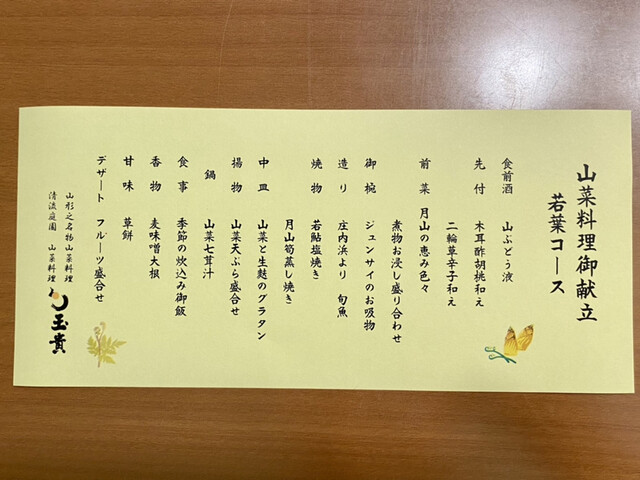 山菜料理御献立
若葉コース
食前酒 山ぶどう液
先付 木耳酢胡桃和え
二輪草辛子和え
前菜 月山の恵み色々
煮物お浸し盛り合わせ
御椀 ジュンサイのお吸物
造り 庄内浜より 旬魚
焼物 若鮎塩焼き
月山筍蒸し焼き
中皿 山菜と生麩のグラタン
揚物 山菜天ぷら盛合せ
鍋 山菜七茸汁
食事 季節の炊込み御飯
香物 麦味噌大根
甘味 草餅
デザート フルーツ盛合せ
山形之名物山菜料理
清流庭園 山菜料理
玉貴